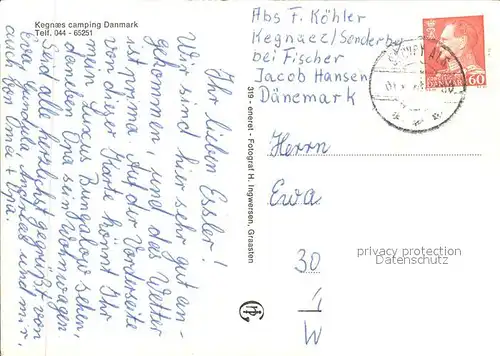 Kegnæs camping Danmark
Telf. 044 - 65251
Ihr lieben Essler!
Wir sind hier sehr gut an-
gekommen, und das Wetter
ist prima. Auf der Vorderseite
von dieser Karte könnt Ihr
mein Luxus Bungalow sehen,
daneben Opa sein Wohnwagen.
Seid alle herzlichst gegrüßt von
Ewa, Gundula, Andreas und mir,
auch von Oma + Opa.
319 - eneret - Fotograf H. Ingwersen, Graasten
Abs F. Köhler
Kegnaez/Sonderby
bei Fischer
Jacob Hansen
Dänemark
60
Herrn
Ewa
30
1
W
privacy protection
www.ansichtskartenversand.com